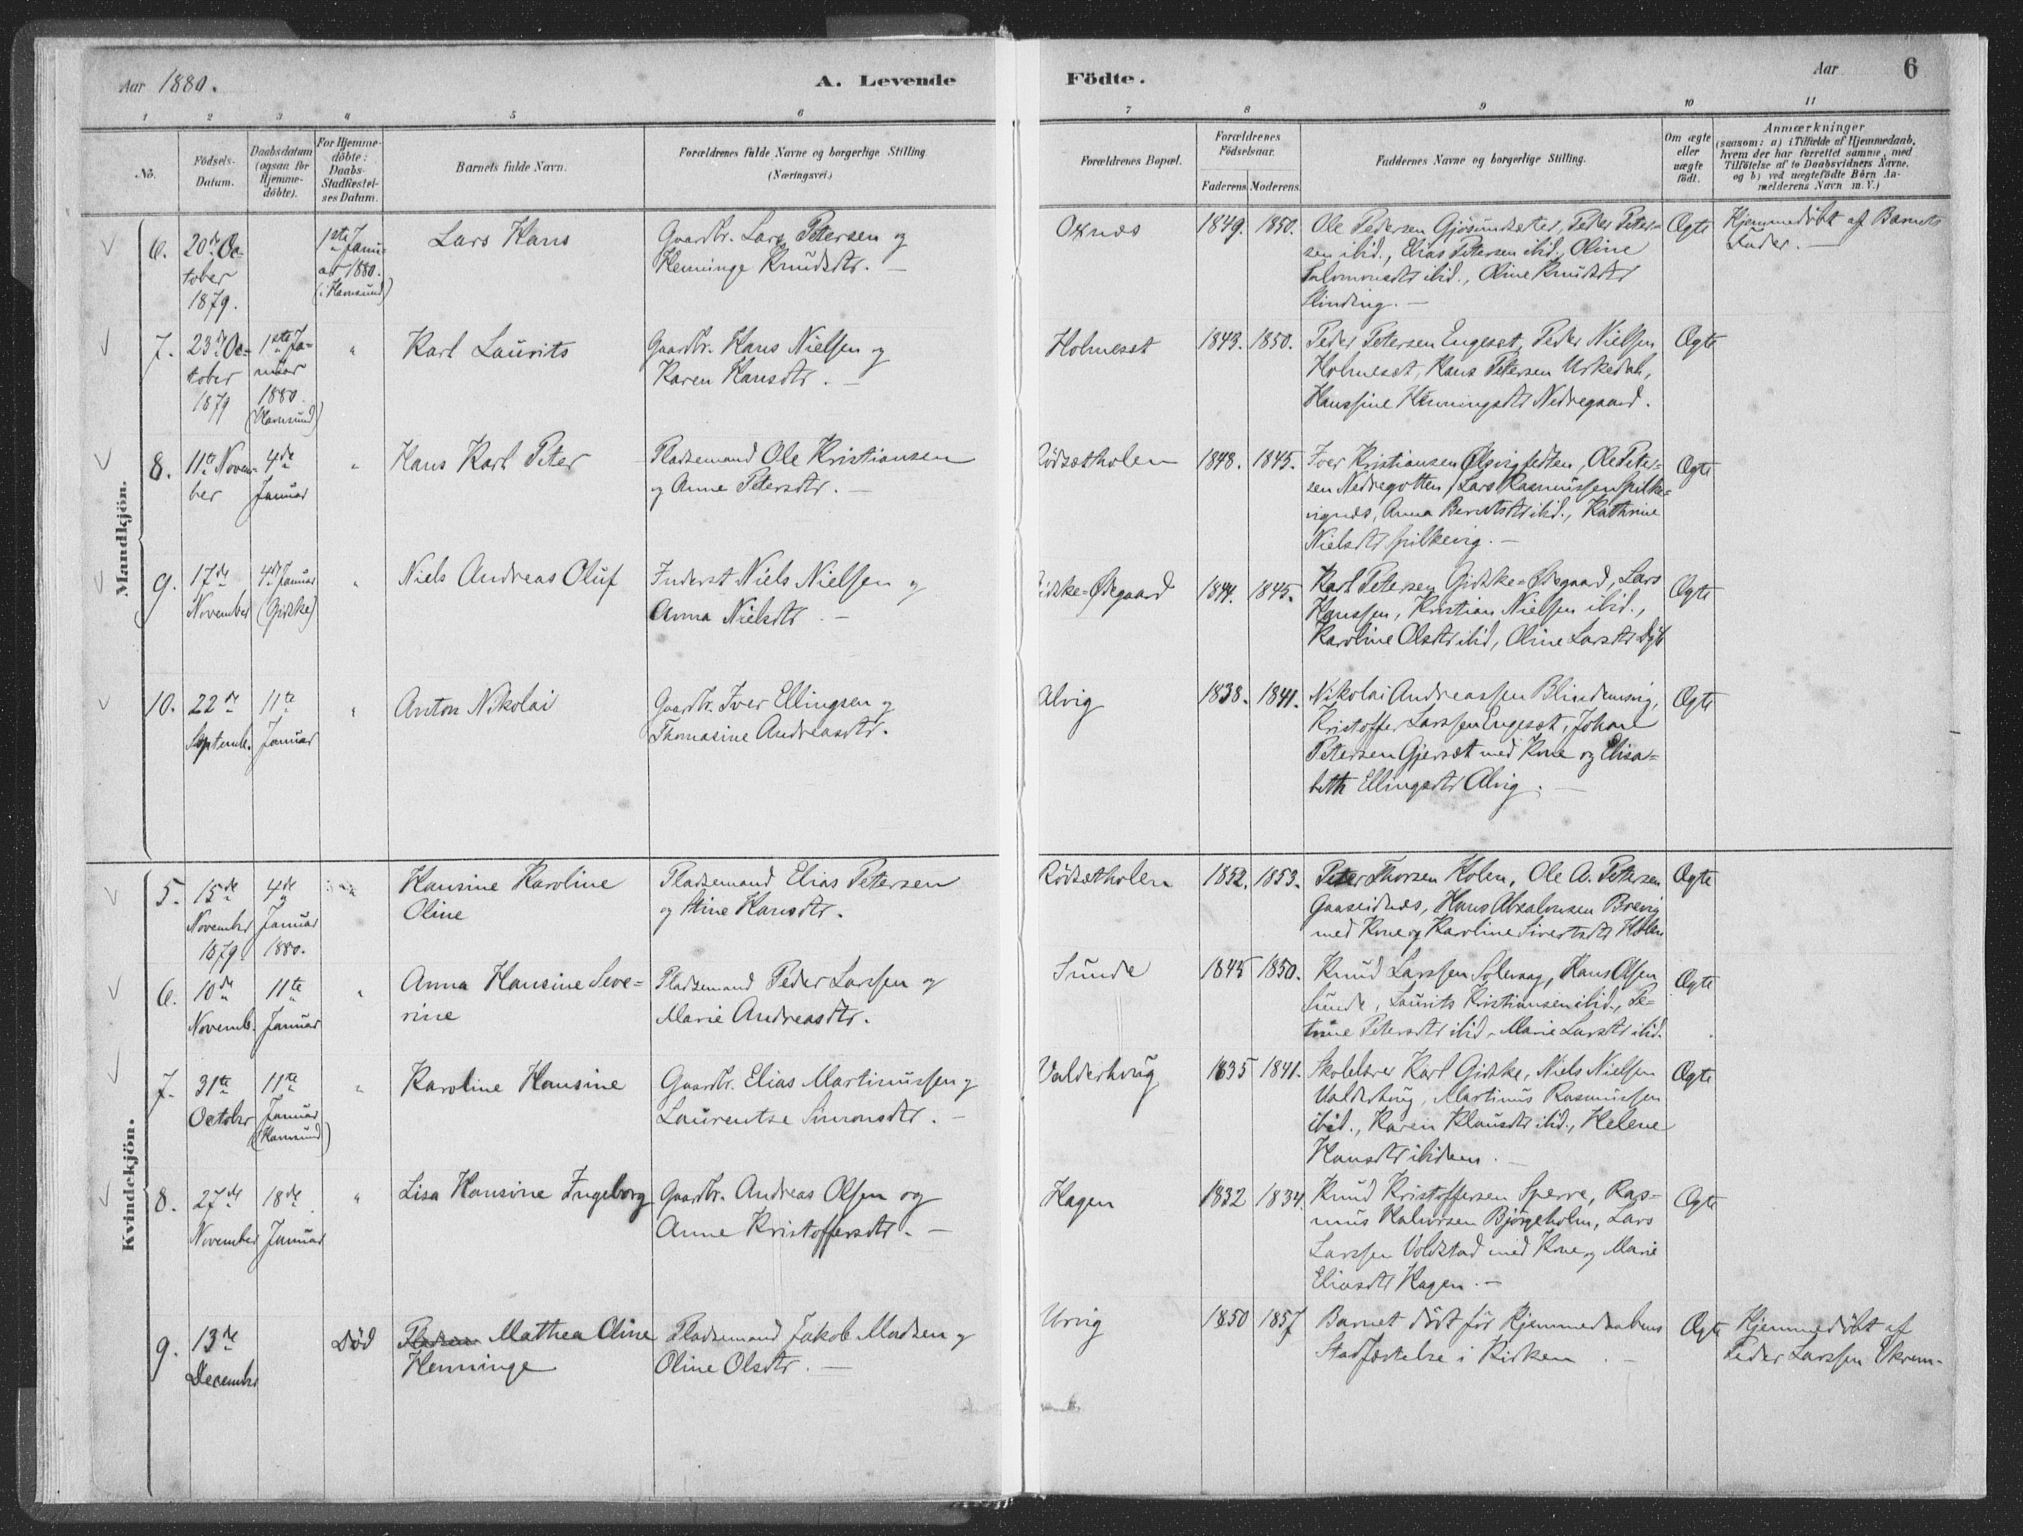 Aar 1880.
A. Levende
Födte.
Aar
6
1 2 3 4 5 6 7 8 9 10 11
No.
Födsels-
Datum.
Daabsdatum
(ogsaa for
Hjemme-
döbte).
For Hjemme-
döbte:
Daabs-
Stadfæstel-
ses Datum.
Barnets fulde Navn.
Forældrenes fulde Navne og borgerlige Stilling
(Næringsvei.)
Forældrenes Bopæl.
Forældrenes
Födselsaar.
Faderens. Moderens.
Faddernes Navne og borgerlige Stilling.
Om ægte
eller
uægte
födt.
Anmærkninger
(saasom: a) i Tilfælde af Hjemmedaab,
hvem der har forrettet samme, med
Tilföielse af to Daabsvidners Navne,
og b) ved uægtefödte Börn An-
melderens Navn m. V.)
Mandkjön.
6.
20de Oc-
tober
1879.
1ste Janu-
ar 1880.
(i Hamsund)
Lars Hans
Gaardbr. Lars Petersen og
Henninge Knudsdtr. —
Oxnæs
1849. 1850.
Ole Pedersen Gjøsundsæter, Peder Peter-
sen ibid., Elias Petersen ibid., Oline
Salomonsdtr ibid., Oline Knudsdtr
Slinding. —
Ægte
Hjemmedøbt af Barnets
Fader. —
7.
23de Oc-
tober
1879
1ste Ja-
nuar
1880.
(Hamsund)
"
Karl Laurits
Gaardbr. Hans Nielsen og
Karen Hansdtr. —
Holmeset
1843. 1850.
Peder Petersen Engeset, Peder Nielsen
Holmeset, Hans Petersen Urkedal,
Hanssine Henningsdtr Nedregaard.
Ægte
8.
11te Novem-
ber
4de
Januar
"
Hans Karl Peter
Pladsemand Ole Kristiansen
og Anne Petersdtr. —
Rødsætholen
1848. 1845.
Iver Kristiansen Ølgvigfedten, Ole Peter-
sen Nedregotten, Lars Rasmussen Spilke-
vignæs, Anna Berntsdtr ibid., Kathrine
Nielsdtr Spilkevig. —
Ægte
9.
17de
November
4de Januar
(Gidske)
"
Niels Andreas Oluf
Inderst Niels Nielsen og
Anna Nielsdtr. —
Gidske-Ødegaard
1844. 1845.
Karl Petersen Gidske-Ødegaard, Lars
Hanssen, Kristian Nielsen ibid.,
Karoline Olsdtr ibid., Oline Larsdtr
Ægte
10.
22de
Septemb.
11te
Januar
"
Anton Nikolai
Gaardbr. Iver Ellingsen og
Thomasine Andreasdtr.
Alvig
1838. 1841.
Nikolai Andreassen Blindemsvig,
Kristoffer Larssen Engeset, Johan
Petersen Gjerset med Kone og Elisa-
beth Ellingsdtr Alvig. —
Ægte
Kvindekjön.
5.
15de
November
1879
4de
Januar
1880.
Hansine Karoline
Oline
Pladsemand Elias Pettersen
og Stine Hansdtr.
Rødsætholen
1852. 1853.
Peter Thorsen Holen, Ole A. Pettersen
Gaaseidnæs, Hans Absalonsen Brevig
med Kone og Karoline Sivertsdtr Holen
Ægte
6.
10de
Novemb.
11te
Januar
"
Anna Hansine Seve-
rine
Pladsemand Peder Larssen og
Marie Andreasdtr.
Sunde
1845 1850.
Knud Larssen Solevaag, Hans Olsen
Sunde, Laurits Kristiansen ibid., Pe-
trine Petersdtr ibid., Marie Larsdtr ibid.
Ægte
7.
31te
October
11te
Januar
(Hamsund)
"
Karoline Hansine
Gaardbr. Elias Martinussen og
Laurentse Simonsdtr. —
Valderhoug
1835 1841.
Skolelærer Karl Gidske, Niels Nielsen
Valderhoug, Martinus Rasmussen
ibid., Karen Klausdtr ibid., Helene
Hansdtr ibidem. —
Ægte
8.
27de
November
18de
Januar
"
Lisa Hansine Ingeborg
Gaardbr. Andreas Olsen og
Anne Kristoffersdtr. —
Hagen
1832 1834.
Knud Kristoffersen Sperre, Ras-
mus Halvorsen Bjørgeholm, Lars
Larssen Voldstad med Kone og Marie
Eliasdtr Hagen. —
Ægte
9.
13de
December
Død
Mathea Oline
Henninge
Pladsemand Jakob Madsen og
Oline Olsdtr. —
Urvig
1850 1857
Barnet dødt før Hjemmedaabens
Stadfæstelse i Kirken. —
Ægte
Hjemmedøbt af
Peder Larssen